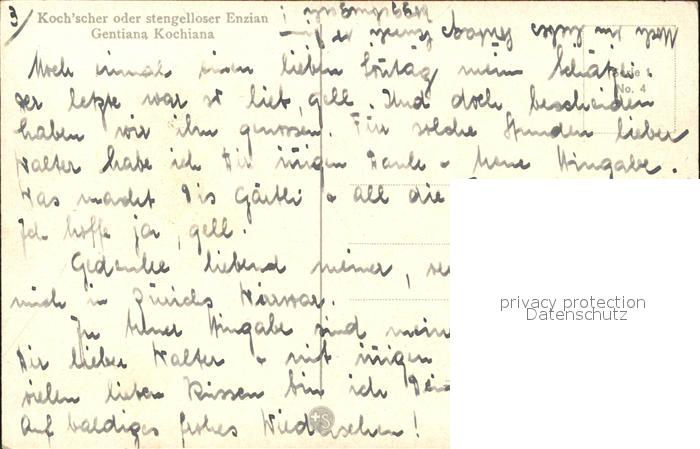 3/ Koch'scher oder stengelloser Enzian
Gentiana Kochiana
Serie 1
No. 4
Noch einmal einen lieben Sonntag mein Schätzi.
Der letzte war so lieb, gell. Und doch bescheiden
haben wir ihn genossen. Für solche Stunden lieber
Walter habe ich Dir innigen Dank & treue Hingabe.
Was macht Dis Gärtli & all die
Ich hoffe ja, gell.
Gedenke liebend meiner,
mich in Zürichs Wirrwar.
In treuer Hingabe sind meine
Dir lieber Walter & mit innigen
vielen lieben Küssen bin ich Deine
Auf baldiges frohes Wiedersehen!
privacy protection
Datenschutz